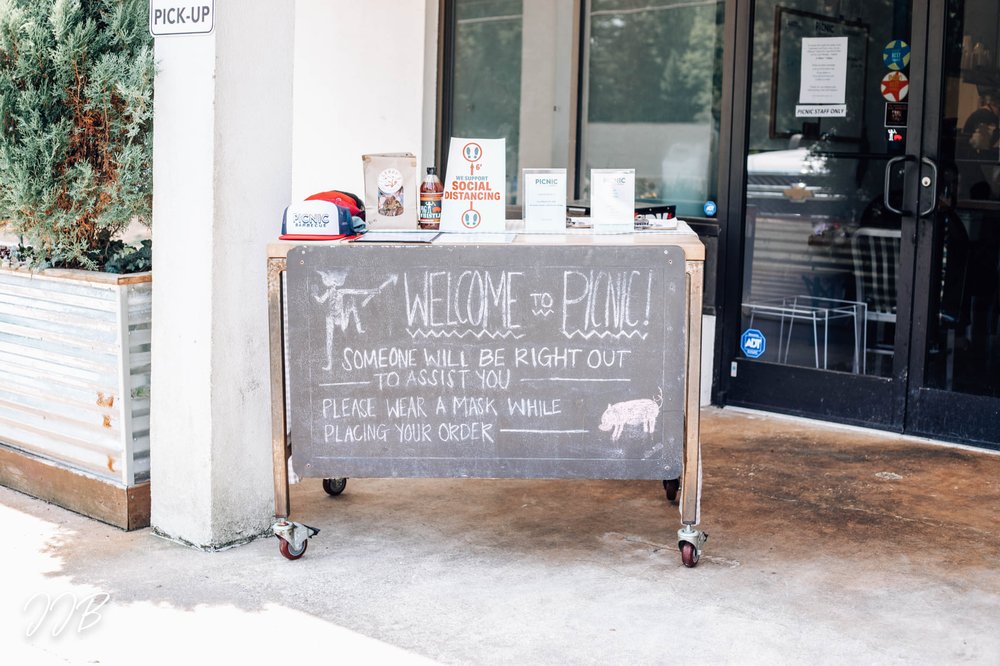 PICK-UP
PICNIC
PICNIC STAFF ONLY
6'
WE SUPPORT
SOCIAL
DISTANCING
PICNIC
PICNIC
PICNIC
BARBECUE
WELCOME TO PICNIC!
SOMEONE WILL BE RIGHT OUT
TO ASSIST YOU
PLEASE WEAR A MASK WHILE
PLACING YOUR ORDER
ADT
JJB